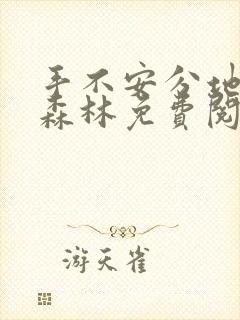 手不安分地
森林免费阅
游天雀